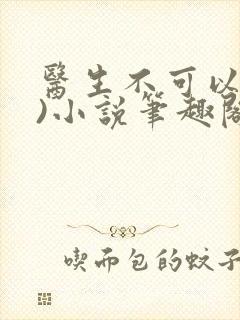 醫生不可以
)小說筆趣閣
喫而包的蚊子